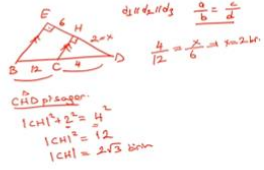 E
6
H
2=x
B 12 C 4 D
d₁ // d₂ // d₃
a/b = c/d
4/12 = x/6 ⇒ x=2 br.
CHD pisagor.
|CH|² + 2² = 4²
|CH|² = 12
|CH| = 2√3 birim